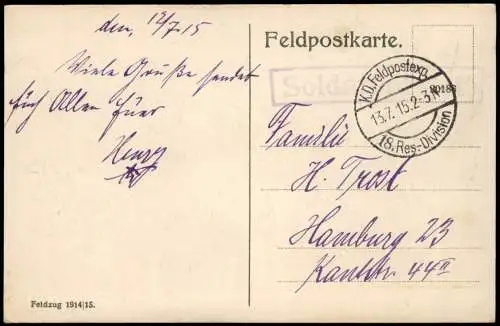 den, 12/7.15
Viele Grüße sendet
Euch Allen Euer
Henry
Feldzug 1914/15.
Feldpostkarte.
K.D. Feldpostexp.
13.7.15. 2-3 N
18. Res.-Division
Familie
H. Trost
Hamburg 23
Kantstr. 44II